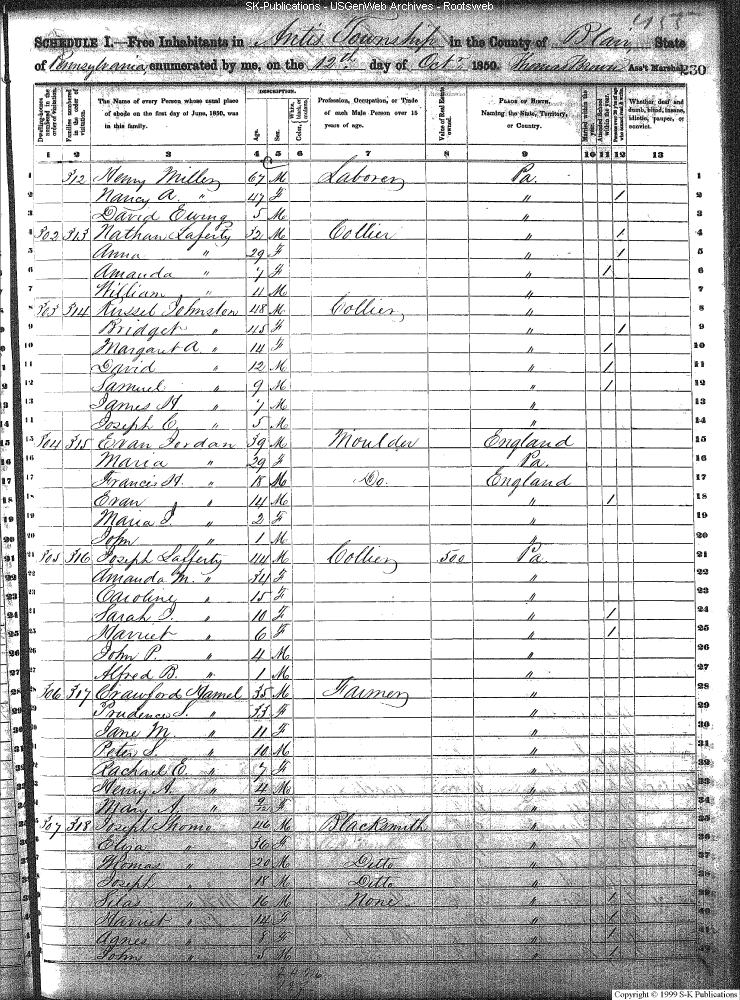 SK-Publications - USGenWeb Archives - Rootsweb
455
SCHEDULE I.—Free Inhabitants in Antis Township in the County of Blair State
of Pennsylvania, enumerated by me, on the 12th day of Oct. 1850. Thomas Brown Ass't Marshal. 230
Dwelling-houses numbered in the order of visitation.
Families numbered in the order of visitation.
The Name of every Person whose usual place of abode on the first day of June, 1850, was in this family.
DESCRIPTION.
Age.
Sex.
White, black, or mulatto.
Color,
Profession, Occupation, or Trade of each Male Person over 15 years of age.
Value of Real Estate owned.
PLACE OF BIRTH, Naming the State, Territory, or Country.
Married within the year.
Attended School within the year.
Whether deaf and dumb, blind, insane, idiotic, pauper, or convict.
1 2 3 4 5 6 7 8 9 10 11 12 13
1 312 Henry Miller 67 M Laborer Pa. 1
2 Nancy A. " 47 F " / 2
3 David Ewing 5 M " 3
4 302 313 Nathan Laferty 32 M Collier " / 4
5 Anna " 29 F " / 5
6 Amanda " 7 F " / 6
7 William " 4 M " 7
8 303 314 Russel Johnston 48 M Collier " 8
9 Bridget " 45 F " / 9
10 Margaret A. " 14 F " / 10
11 David " 12 M " / 11
12 Samuel " 9 M " / 12
13 James H " 7 M " 13
14 Joseph C. " 5 M " 14
15 304 315 Evan Jordan 39 M Moulder England 15
16 Maria " 29 F Pa. 16
17 Francis H. " 18 M Do. England 17
18 Evan " 14 M " / 18
19 Maria J. " 2 F " 19
20 John " 1 M " 20
21 305 316 Joseph Lafferty 44 M Collier 500 Pa. 21
22 Amanda M. " 34 F " 22
23 Caroline " 15 F " 23
24 Sarah J. " 10 F " / 24
25 Harriet " 6 F " / 25
26 John P. " 4 M " 26
27 Alfred B. " 1 M " 27
28 306 317 Crawford Hamel 35 M Farmer " 28
29 Prudence S. " 33 F " 29
30 Jane M. " 11 F " 30
31 Peter S. " 10 M " 31
32 Rachael E. " 7 F " 32
33 Henry A. " 4 M " 33
34 Mary A. " 9/12 F " 34
35 307 318 Joseph Thomo 46 M Blacksmith " 35
36 Eliza " 36 F " 36
37 Thomas " 20 M Ditto " 37
38 Joseph " 18 M Ditto " 38
39 Silas " 16 M None " / 39
40 Harriet " 14 F " / 40
41 Agnes " 8 F " / 41
42 John " 5 M " / 42
Copyright © 1999 S-K Publications